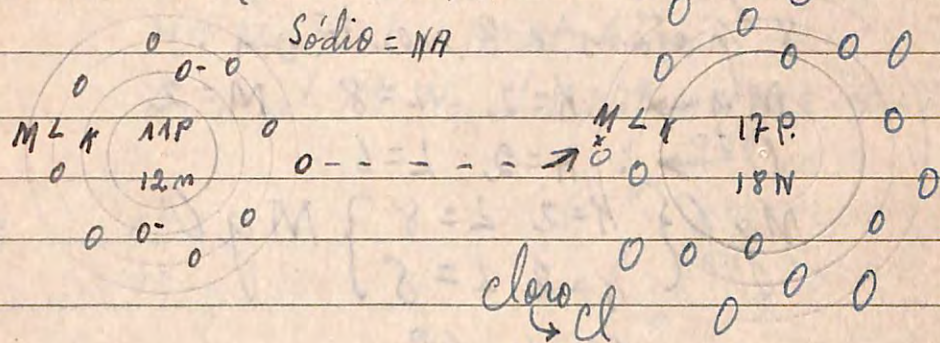 Sódio = NA
M L K 11P
12n
M L K 17P.
18N
cloro
Cl